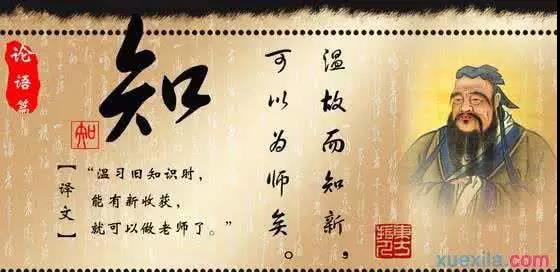 论语篇
知
知
温故而知新，
可以为师矣。
【译文】
“温习旧知识时，
能有新收获，
就可以做老师了。”
xuexila.com